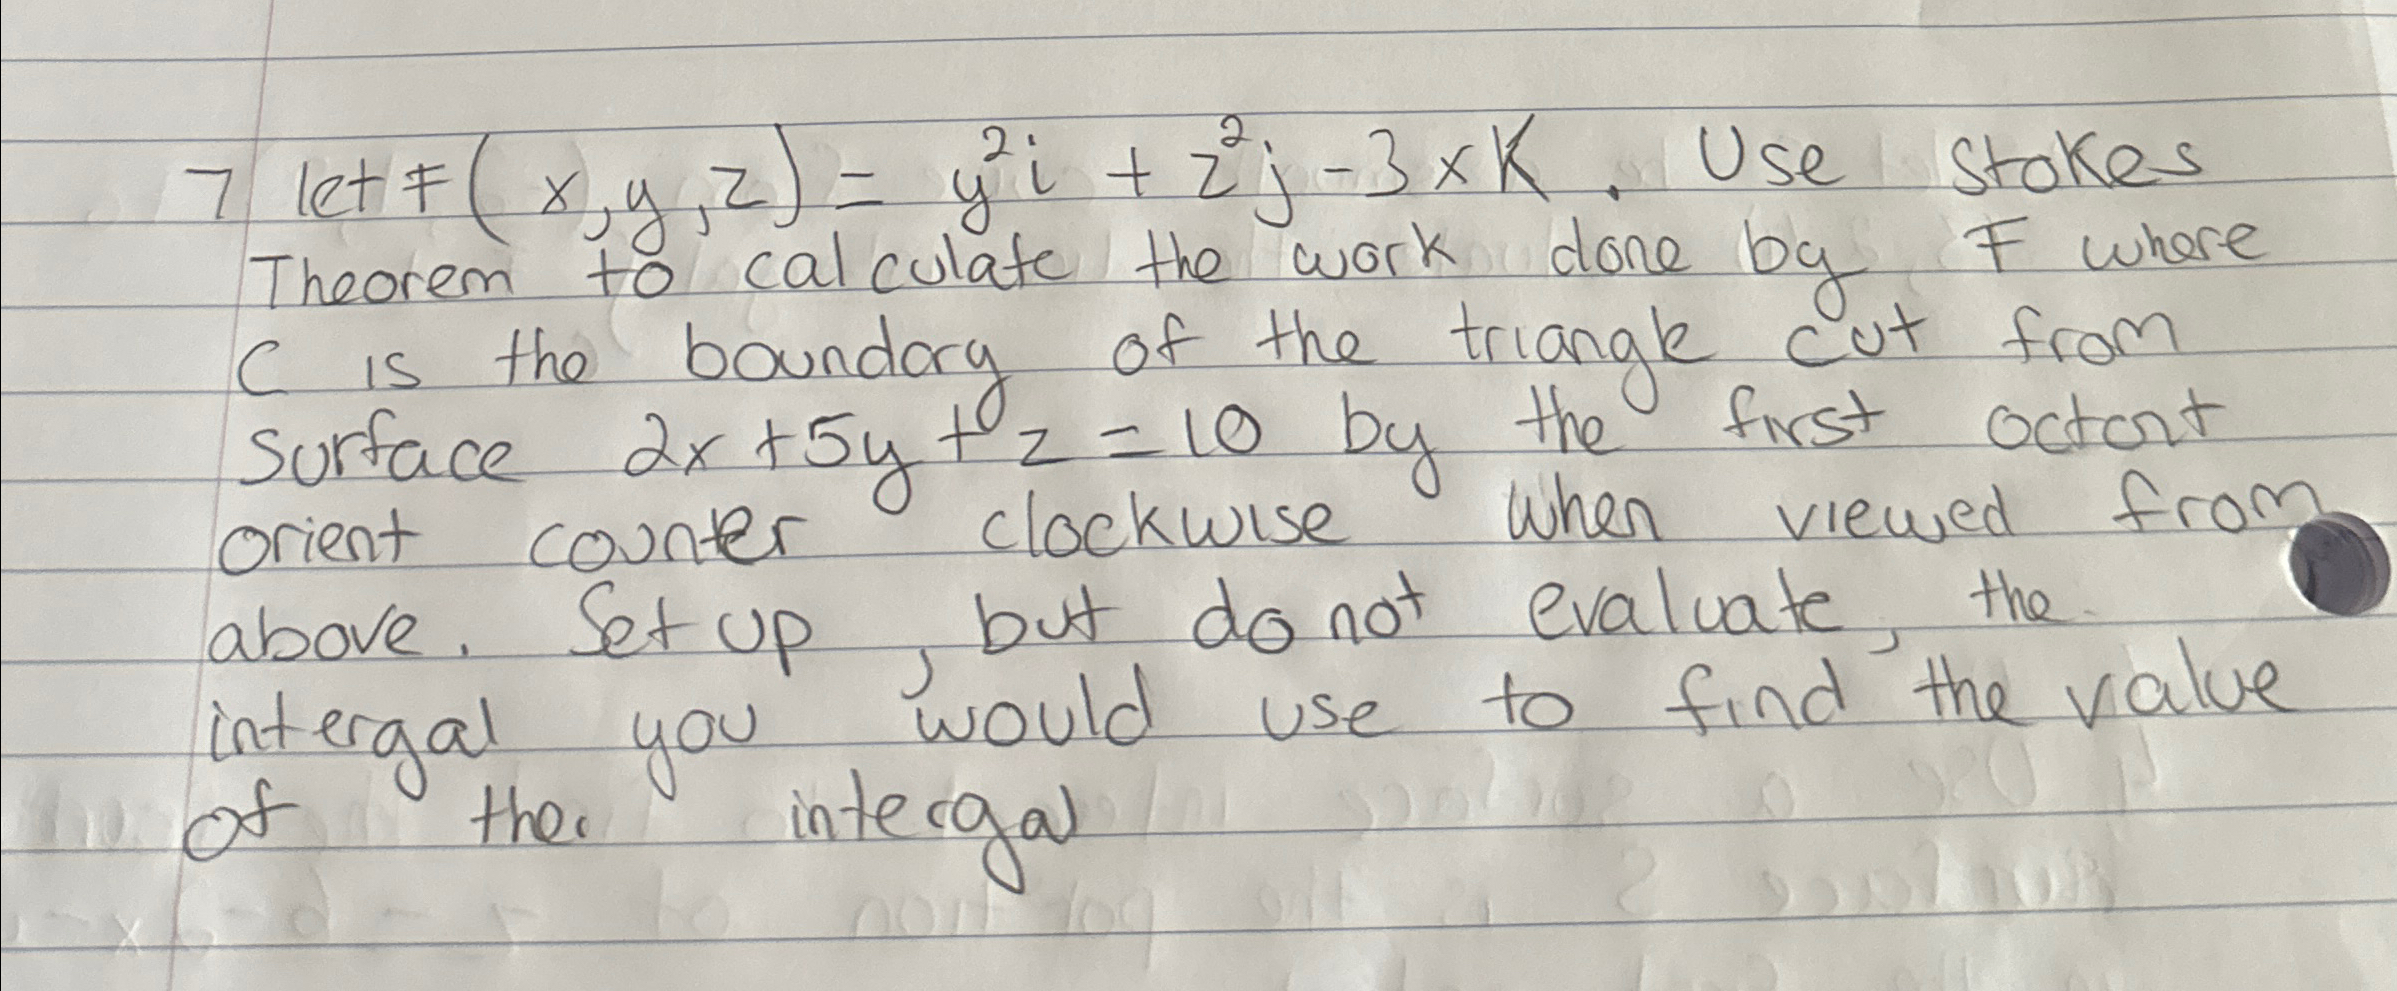 7 let F(x,y,z) = y²i + z²j - 3xK. Use Stokes
Theorem to calculate the work done by F where
C is the boundary of the triangle cut from
surface 2x + 5y + z = 10 by the first octant
orient counter clockwise when viewed from
above. Set up, but do not evaluate, the
intergal you would use to find the value
of the intergal